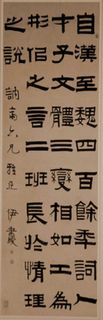 自漢至魏四百餘年詞人
才子文體三變相如工為
形似之言二班長於情理
之說
六兄雅正 伊秉綬